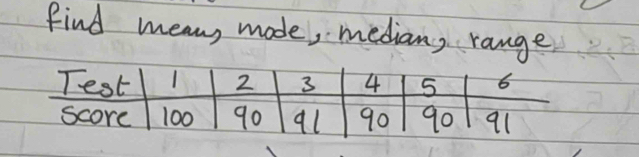 find mean, mode, median, range
Test 1 2 3 4 5 6
Score 100 90 91 90 90 91